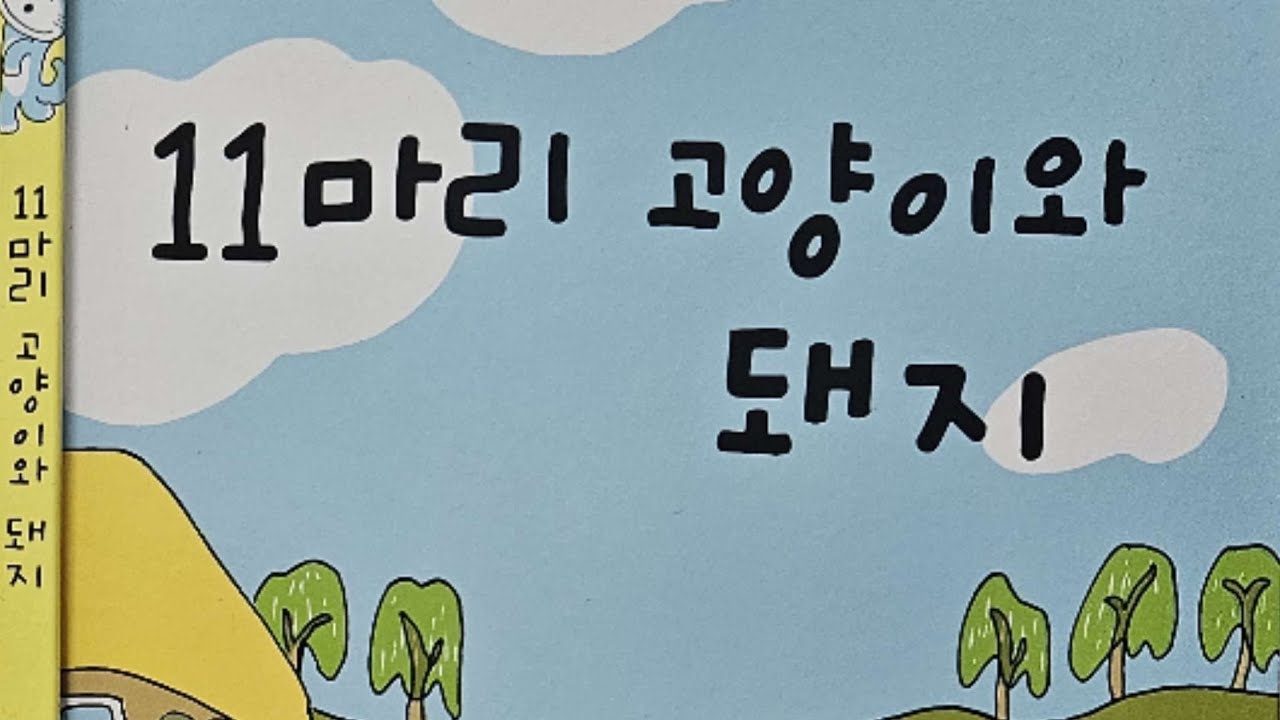 11마리 고양이와
돼지
11마리 고양이와 돼지